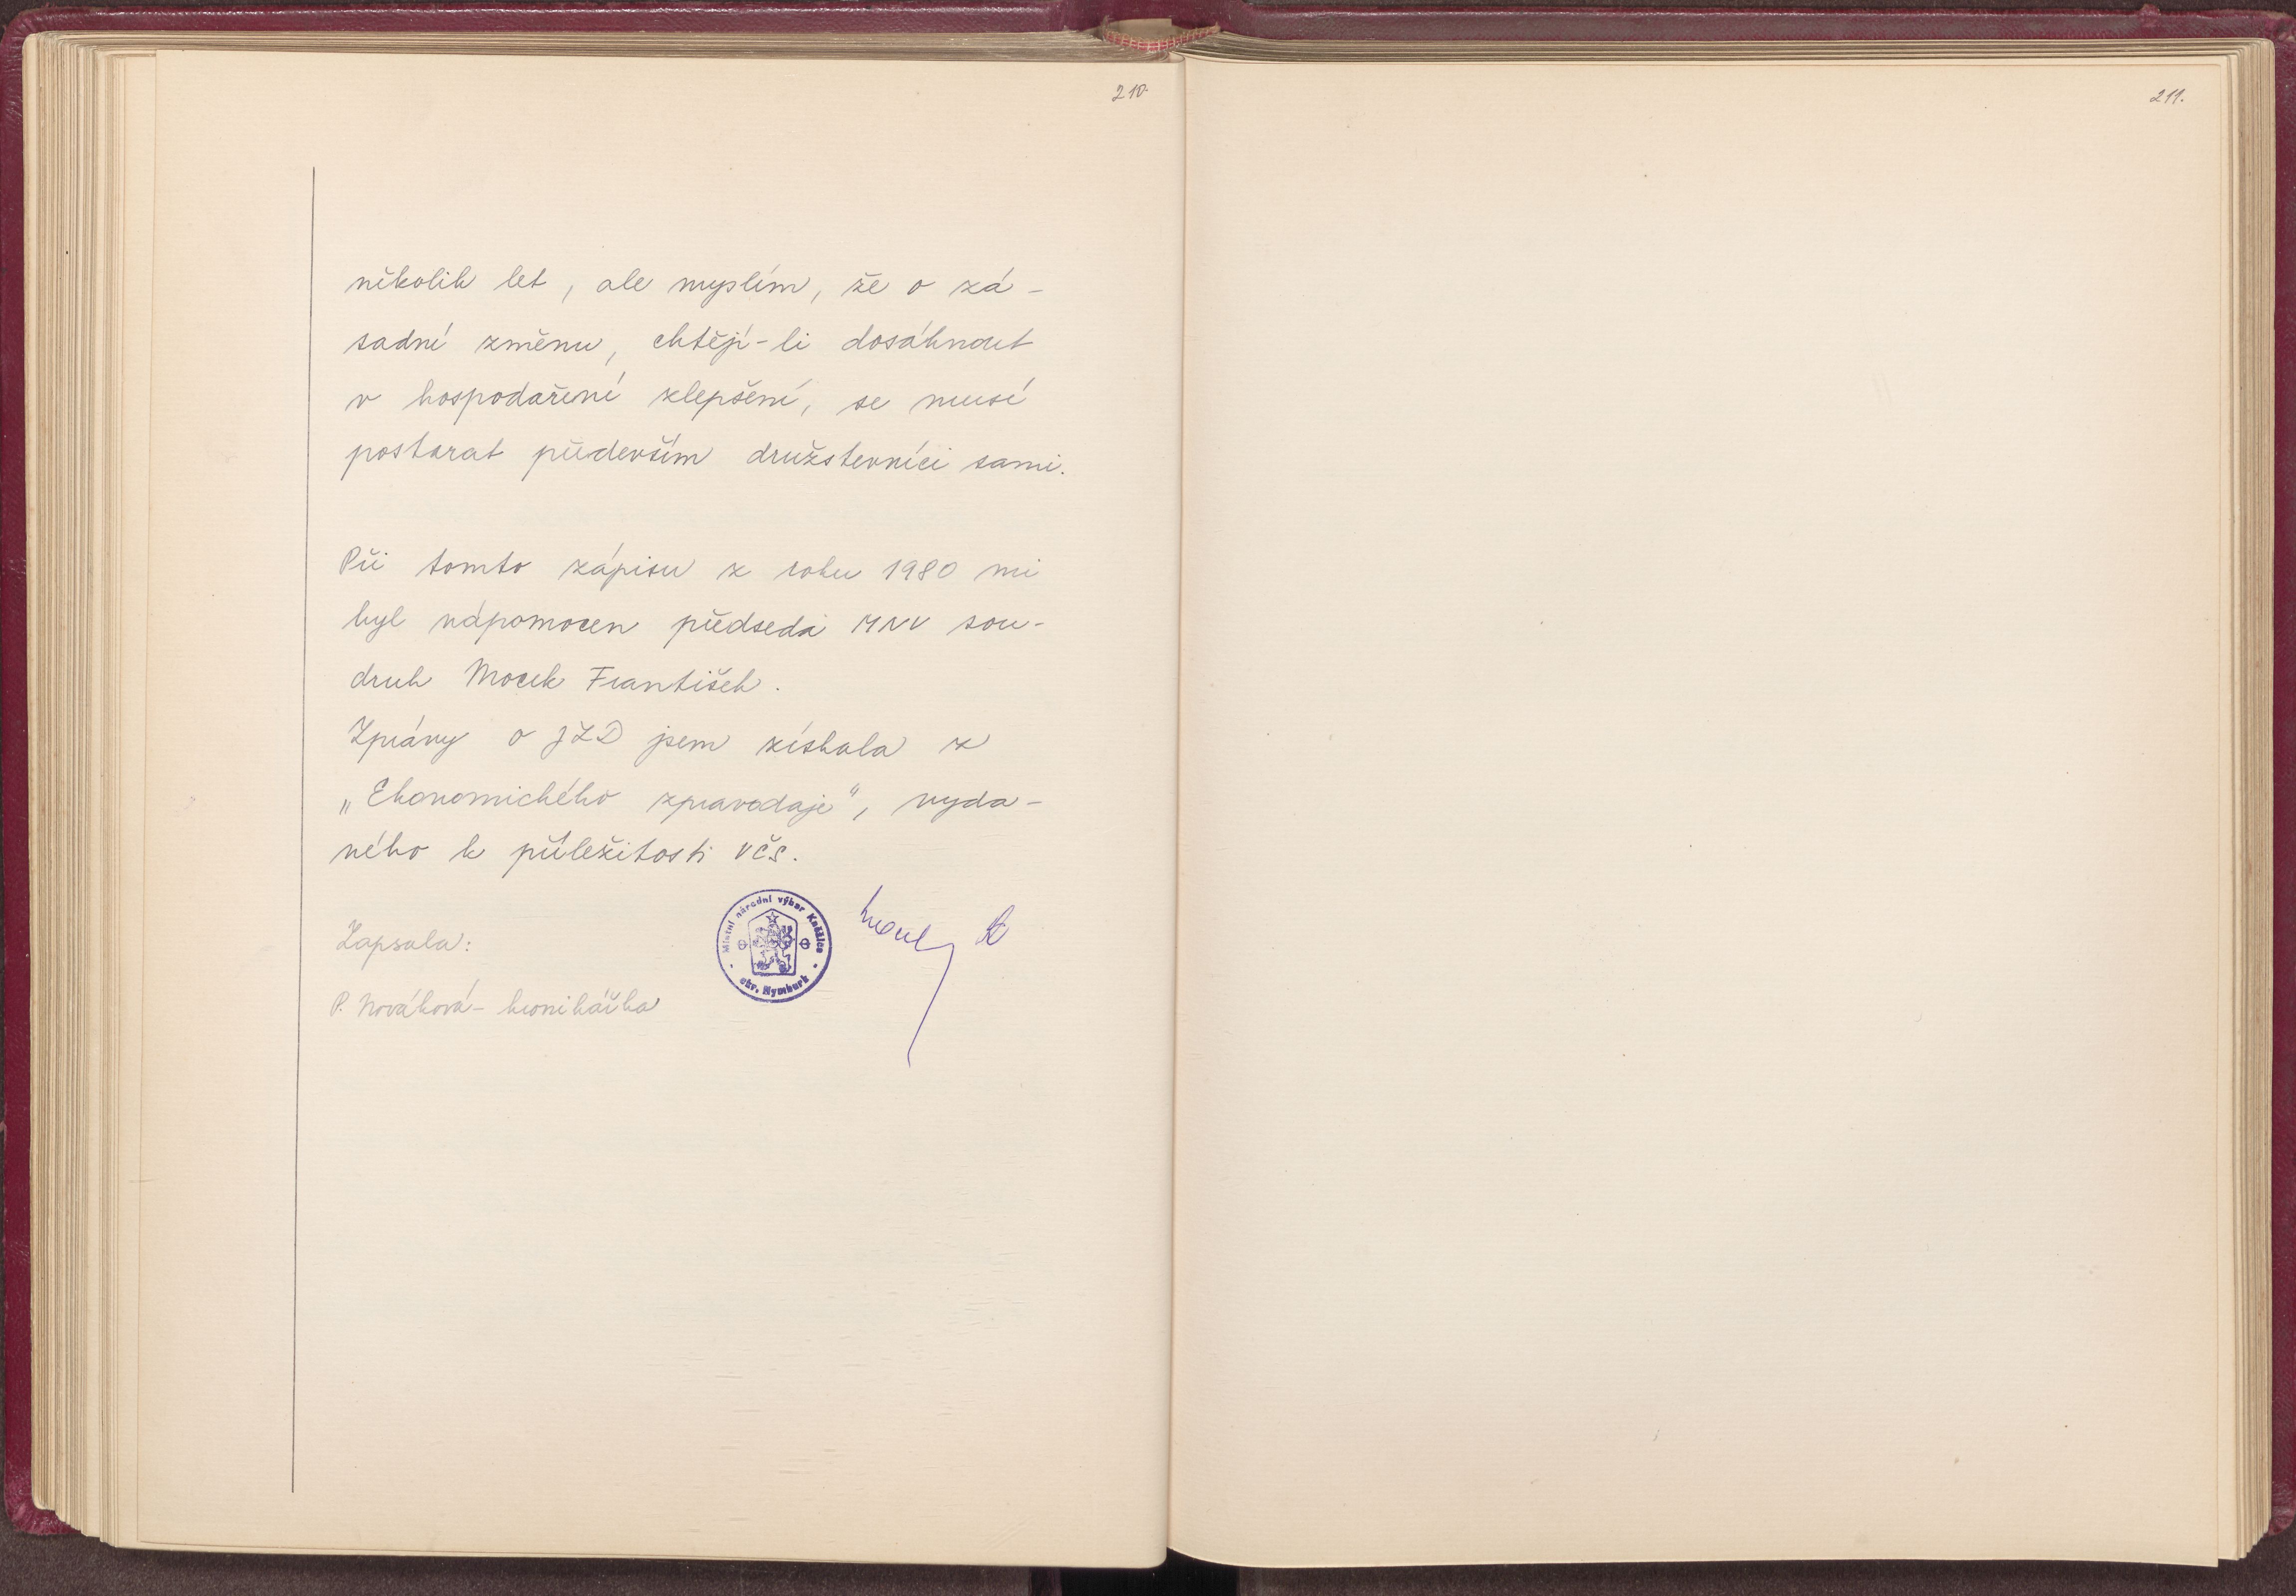 210.
několik let, ale myslím, že o zá-
sadní změnu, chtějí-li dosáhnout
v hospodaření zlepšení, se musí
postarat především družstevníci sami.
Při tomto zápisu z roku 1980 mi
byl nápomocen předseda MNV sou-
druh Mocek František.
Zprávy o JZD jsem získala z
„Ekonomického zpravodaje", vyda-
ného k příležitosti VČS.
Zapsala:
P. Nováková - kronikářka
Místní národní výbor Kněžice
okr. Nymburk
211.